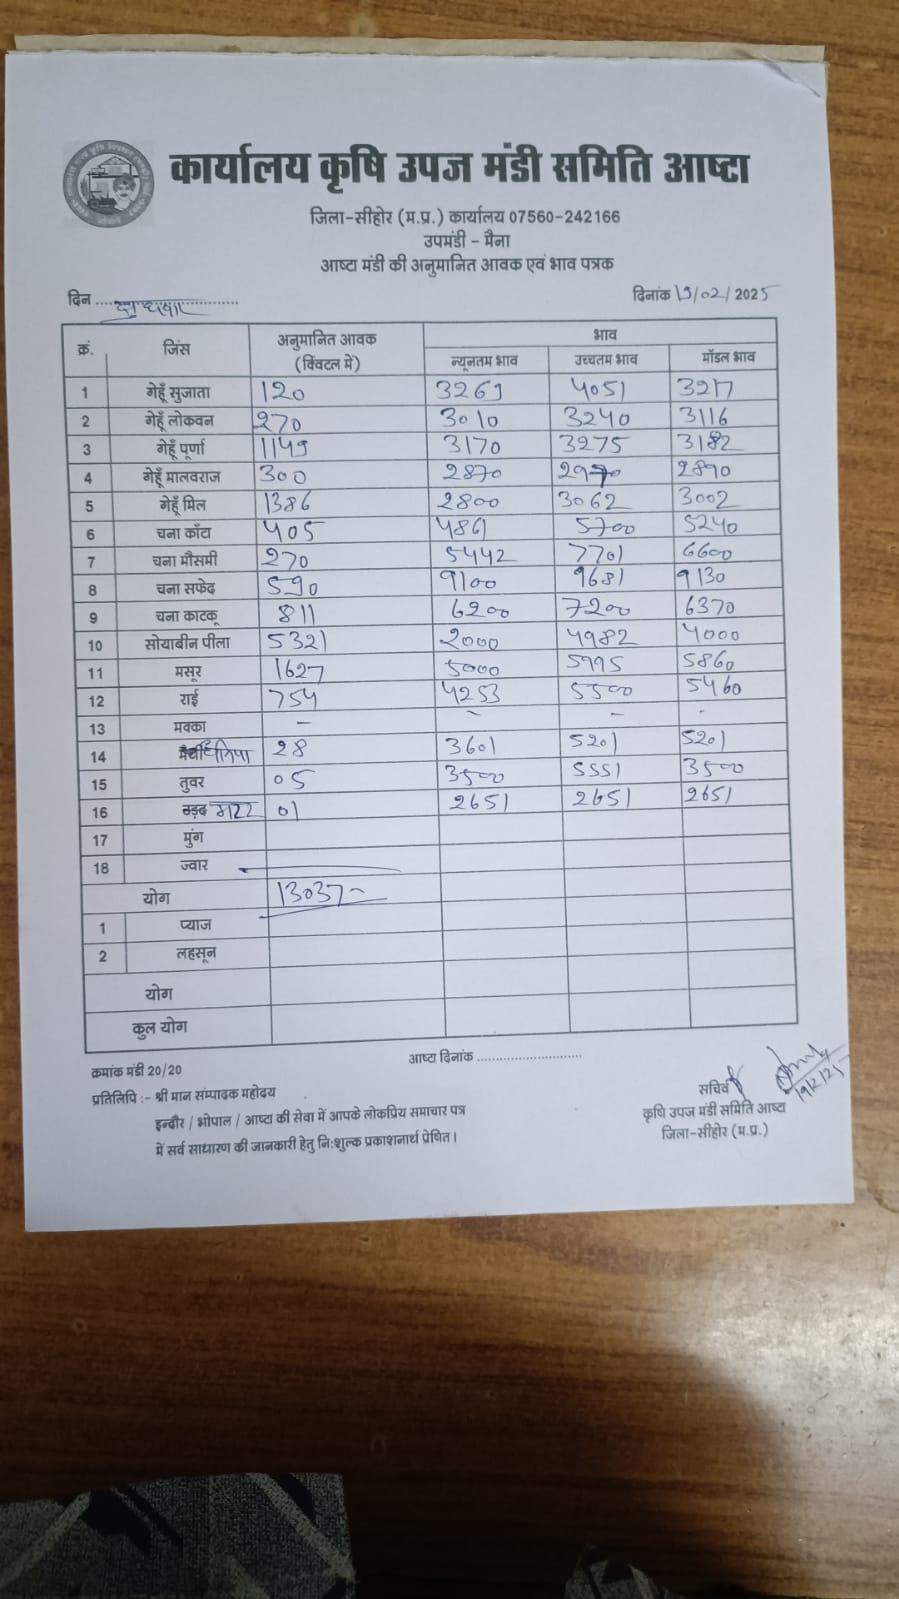 कार्यालय कृषि उपज मंडी समिति आष्टा
जिला-सीहोर (म.प्र.) कार्यालय 07560-242166
उपमंडी - मैना
आष्टा मंडी की अनुमानित आवक एवं भाव पत्रक
दिन .......बुधवार....... दिनांक 19/02/2025
क्रं. जिंस अनुमानित आवक (क्विंटल में) भाव
न्यूनतम भाव उच्चतम भाव मॉडल भाव
1 गेहूँ सुजाता 120 3261 4051 3217
2 गेहूँ लोकवन 270 3010 3240 3116
3 गेहूँ पूर्णा 1149 3170 3275 3182
4 गेहूँ मालवराज 300 2870 2970 2890
5 गेहूँ मिल 1386 2800 3062 3002
6 चना काँटा 405 4861 5700 5240
7 चना मौसमी 270 5442 7701 6600
8 चना सफेद 590 9100 9681 9130
9 चना काटकू 811 6200 7200 6370
10 सोयाबीन पीला 5321 2000 4982 4000
11 मसूर 1627 5000 5995 5860
12 राई 754 4253 5500 5460
13 मक्का - - - -
14 धनिया 28 3601 5201 5201
15 तुवर 05 3500 5551 3500
16 उड़द मटर 01 2651 2651 2651
17 मुंग
18 ज्वार
योग 13037-
1 प्याज
2 लहसून
योग
कुल योग
क्रमांक मंडी 20/20 आष्टा दिनांक ............................
प्रतिलिपि :- श्री मान संम्पादक महोदय
इन्दौर / भोपाल / आष्टा की सेवा में आपके लोकप्रिय समाचार पत्र
में सर्व साधारण की जानकारी हेतु नि:शुल्क प्रकाशनार्थ प्रेषित।
सचिव
19/2/25
कृषि उपज मंडी समिति आष्टा
जिला-सीहोर (म.प्र.)